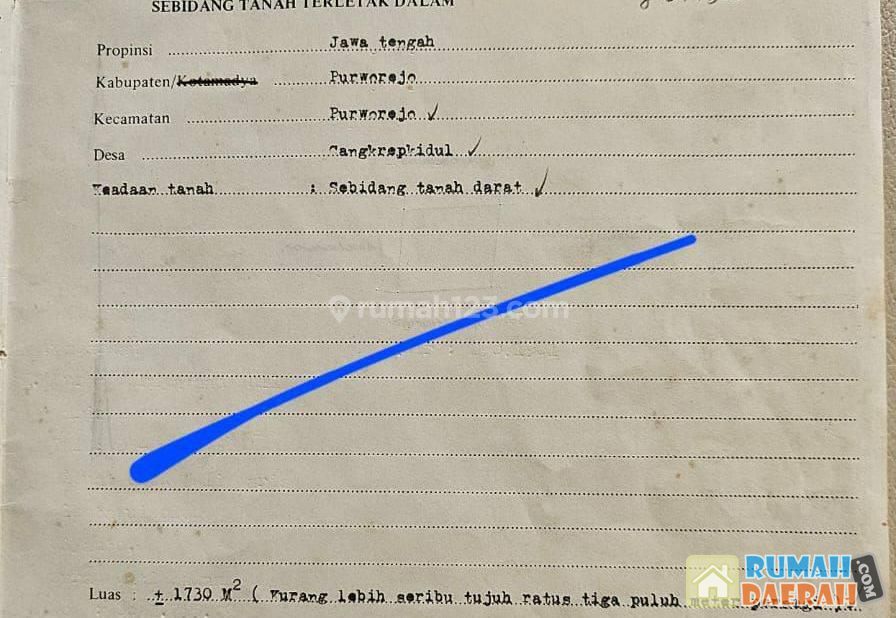 SEBIDANG TANAH TERLETAK DALAM
Propinsi ............ Jawa tengah
Kabupaten/Kotamadya ............ Purworejo
Kecamatan ............ Purworejo ✓
Desa ............ Cangkrepkidul ✓
Keadaan tanah : Sebidang tanah darat ✓
rumah123.com
Luas : ± 1730 M2 ( Kurang lebih seribu tujuh ratus tiga puluh meter
RUMAH DAERAH .COM